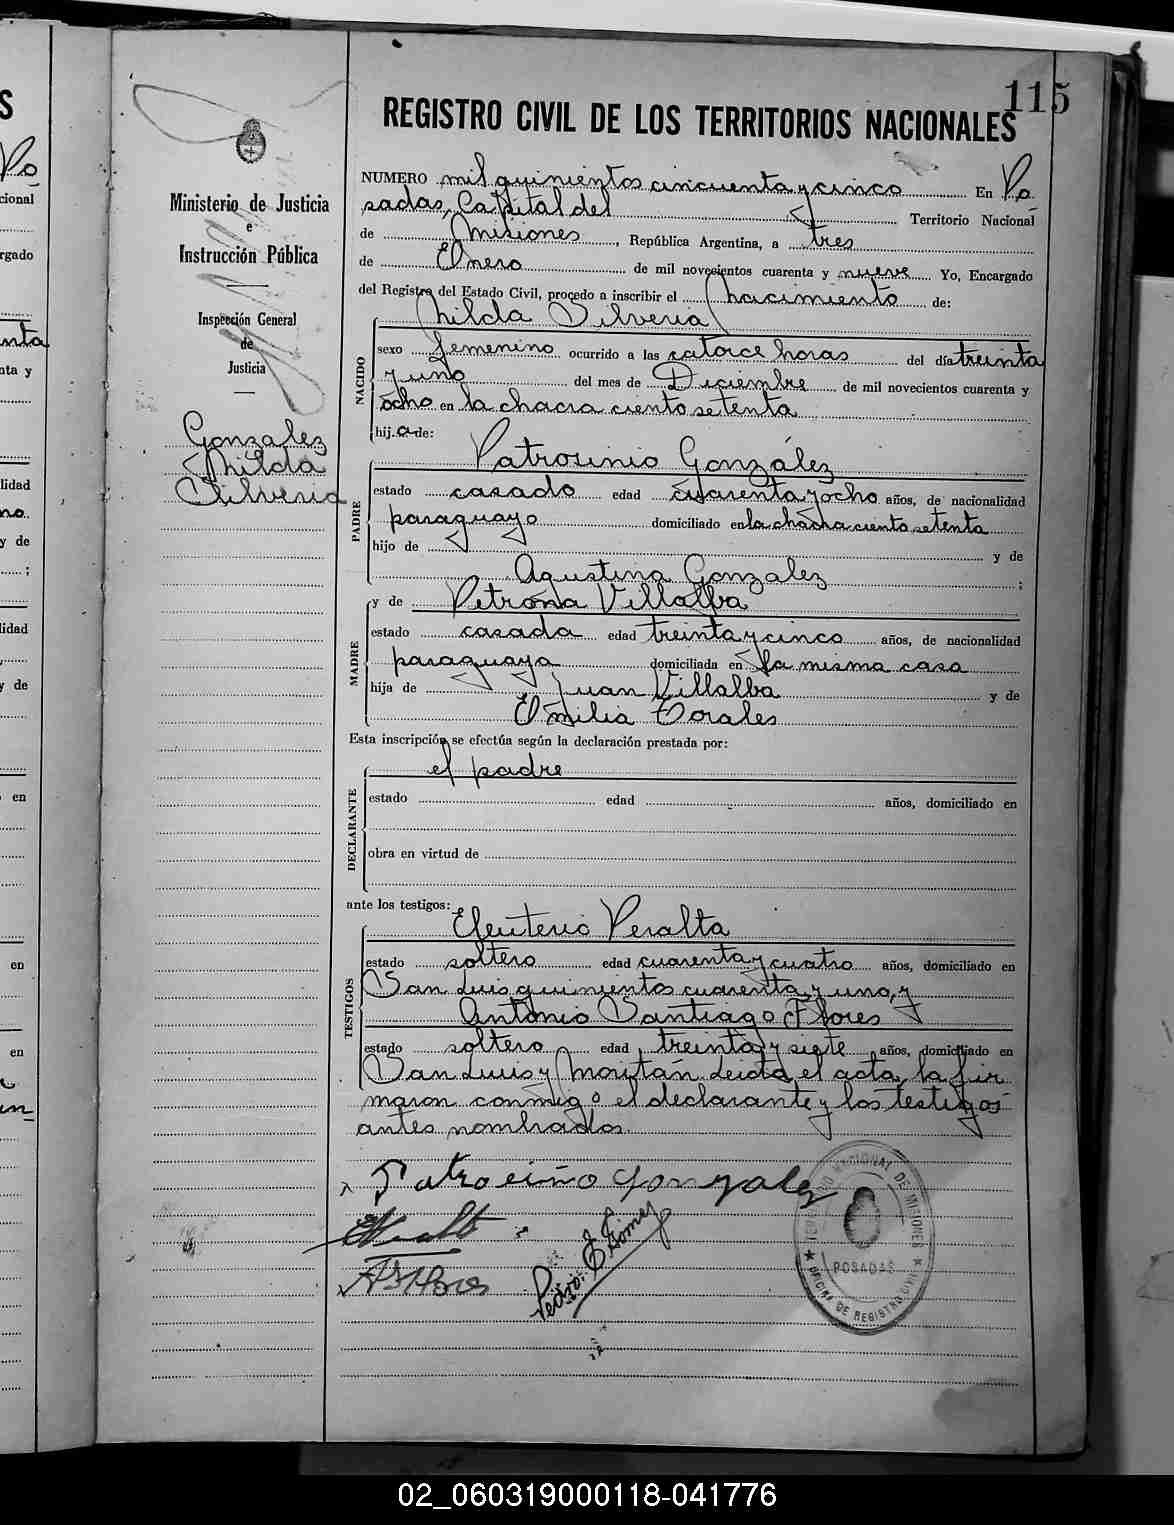 115
REGISTRO CIVIL DE LOS TERRITORIOS NACIONALES
Ministerio de Justicia
e
Instrucción Pública
Inspección General
de
Justicia
Gonzalez
Hilda
Silveria
NUMERO mil quinientos cincuenta y cinco En Po
sadas, Capital del Territorio Nacional
de Misiones, República Argentina, a tres
de Enero de mil novecientos cuarenta y nueve Yo, Encargado
del Registro del Estado Civil, procedo a inscribir el nacimiento de:
Hilda Silveria
NACIDO
sexo femenino ocurrido a las catorce horas del día treinta
y uno del mes de Diciembre de mil novecientos cuarenta y
ocho en la chacra ciento setenta
hija de:
Patrocinio González
PADRE
estado casado edad cuarenta y ocho años, de nacionalidad
paraguayo domiciliado en la chacra ciento setenta
hijo de y de
Agustina Gonzalez ;
y de Petrona Villalba
MADRE
estado casada edad treinta y cinco años, de nacionalidad
paraguaya domiciliada en la misma casa
hija de Juan Villalba y de
Emilia Torales
Esta inscripción se efectúa según la declaración prestada por:
el padre
DECLARANTE
estado edad años, domiciliado en
obra en virtud de
ante los testigos:
Eleuterio Peralta
TESTIGOS
estado soltero edad cuarenta y cuatro años, domiciliado en
San Luis quinientos cuarenta y uno, y
Antonio Santiago Flores
estado soltero edad treinta y siete años, domiciliado en
San Luis y Moritán Leida el acta, la fir
maron conmigo el declarante y los testigos
antes nombrados.
Patrociño Gonzalez
EPeralta
ASFlores
Pedro E. Gómez
TERRITORIO NACIONAL DE MISIONES
POSADAS
OFICINA DE REGISTRO CIVIL
02_060319000118-041776